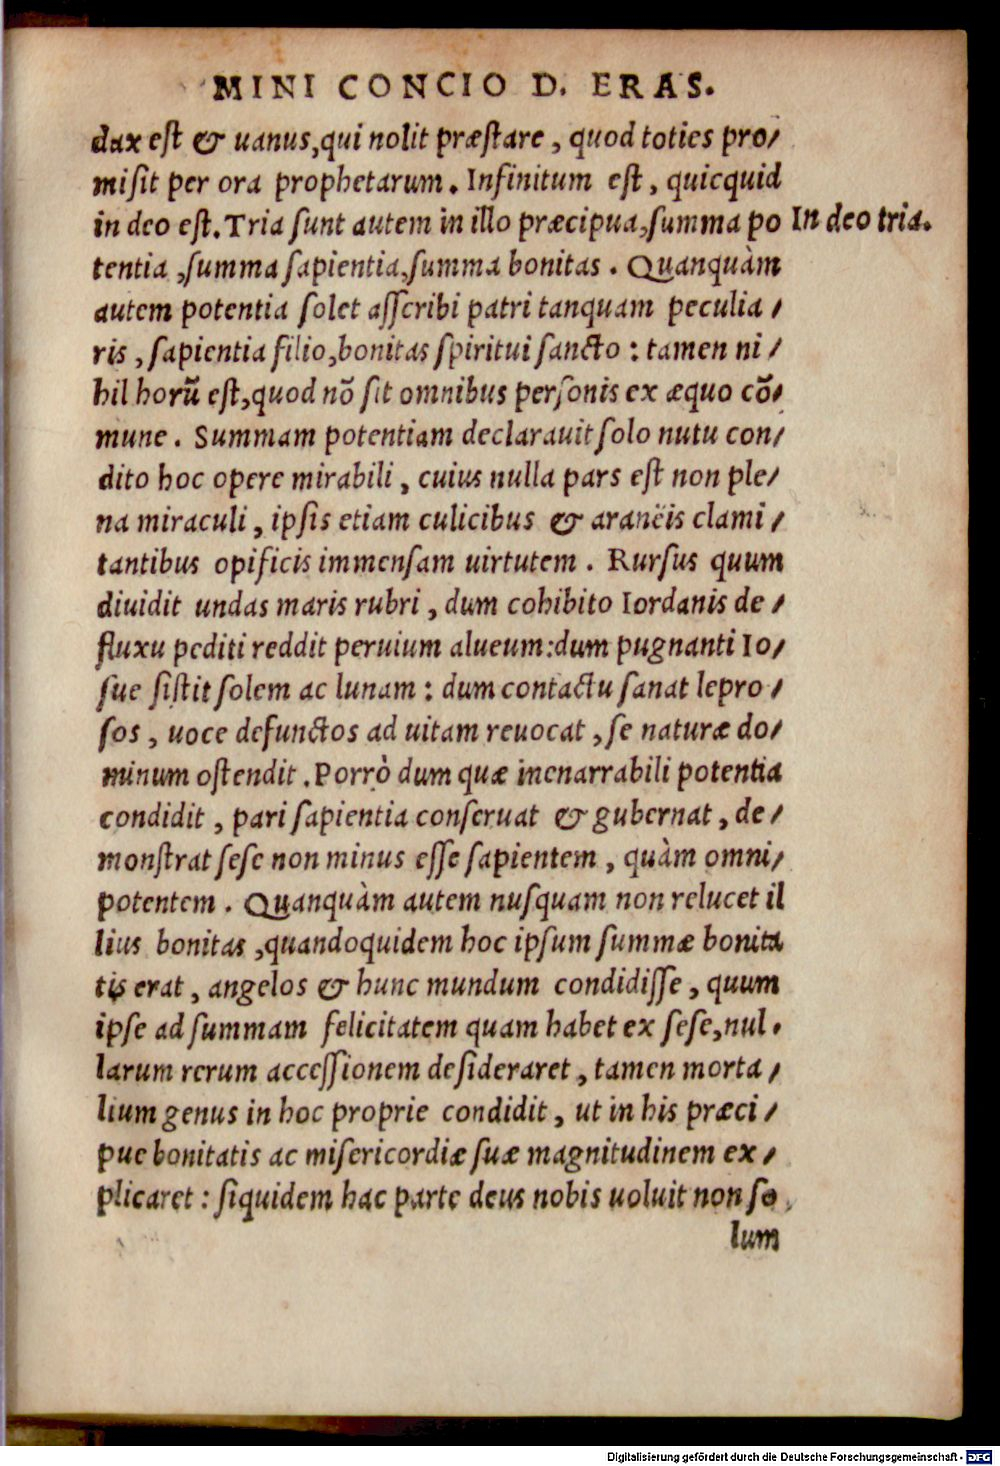 MINI CONCIO D. ERAS.
dax est & uanus, qui nolit præstare, quod toties pro/
misit per ora prophetarum. Infinitum est, quicquid
in deo est. Tria sunt autem in illo præcipua, summa po
In deo tria.
tentia, summa sapientia, summa bonitas. Quanquàm
autem potentia solet asscribi patri tanquam peculia/
ris, sapientia filio, bonitas spiritui sancto: tamen ni/
hil horũ est, quod nõ sit omnibus personis ex æquo cõ/
mune. Summam potentiam declarauit solo nutu con/
dito hoc opere mirabili, cuius nulla pars est non ple/
na miraculi, ipsis etiam culicibus & aranëis clami/
tantibus opificis immensam uirtutem. Rursus quum
diuidit undas maris rubri, dum cohibito Iordanis de/
fluxu pediti reddit peruium alueum: dum pugnanti Io/
sue sistit solem ac lunam: dum contactu sanat lepro/
sos, uoce defunctos ad uitam reuocat, se naturæ do/
minum ostendit. Porrò dum quæ inenarrabili potentia
condidit, pari sapientia conseruat & gubernat, de/
monstrat sese non minus esse sapientem, quàm omni/
potentem. Quanquàm autem nusquam non relucet il
lius bonitas, quandoquidem hoc ipsum summæ bonita
tis erat, angelos & hunc mundum condidisse, quum
ipse ad summam felicitatem quam habet ex sese, nul/
larum rerum accessionem desideraret, tamen morta/
lium genus in hoc proprie condidit, ut in his præci/
pue bonitatis ac misericordiæ suæ magnitudinem ex/
plicaret: siquidem hac parte deus nobis uoluit non so/
lum
Digitalisierung gefördert durch die Deutsche Forschungsgemeinschaft - DFG